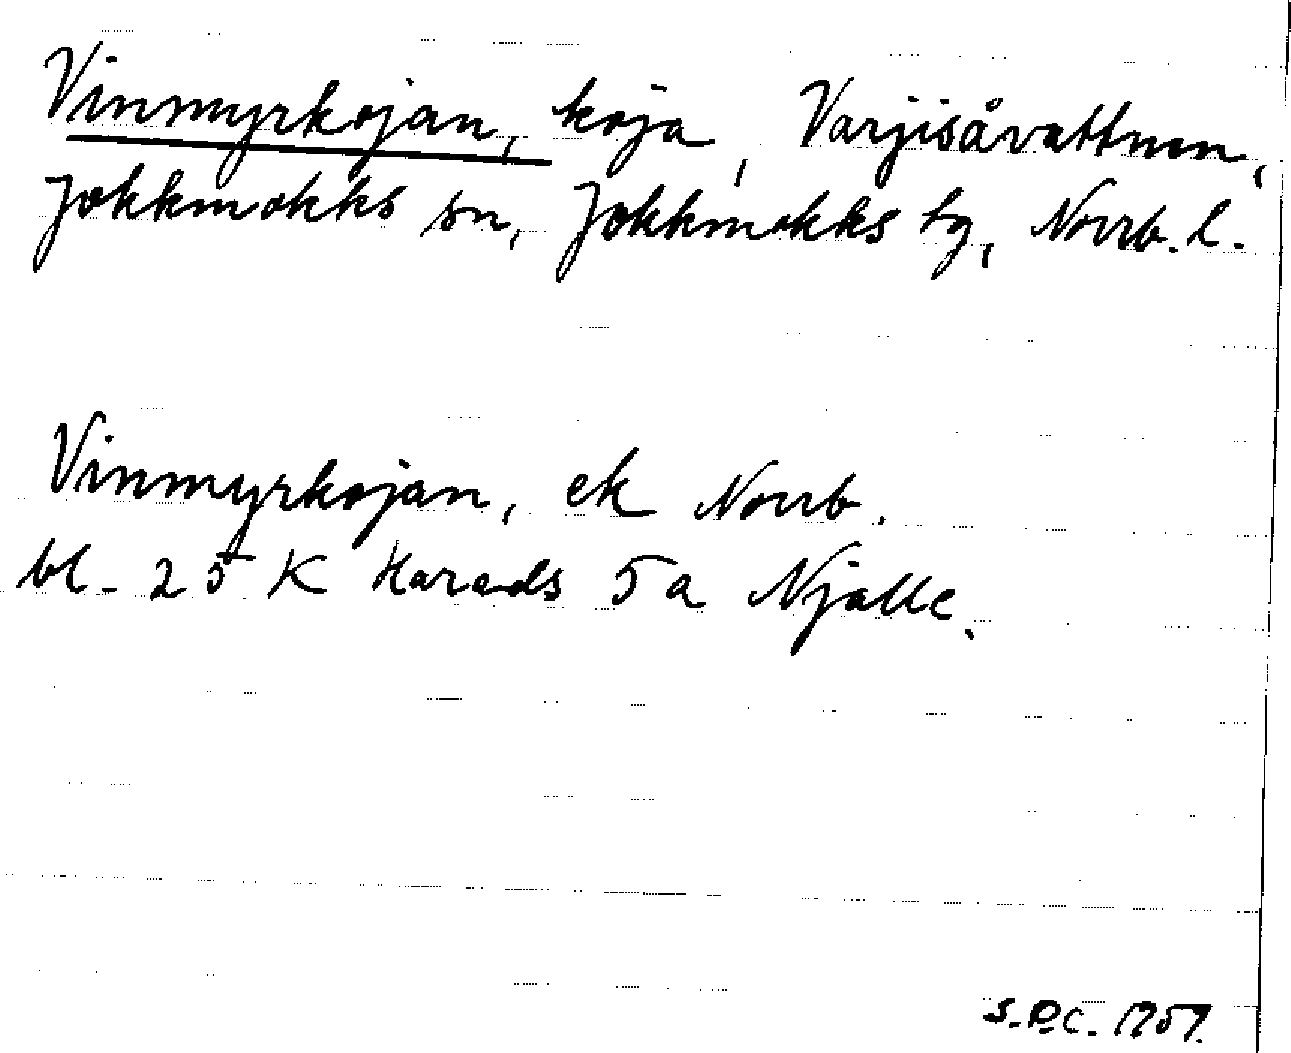 Vinmyrkojan, koja, Varjisåvattnen,
Jokkmokks sn, Jokkmokks tg, Norrb. l.
Vinmyrkojan, ek Norrb.
bl. 25 K Harads 5a Njalle.
S.P.C. 1959.